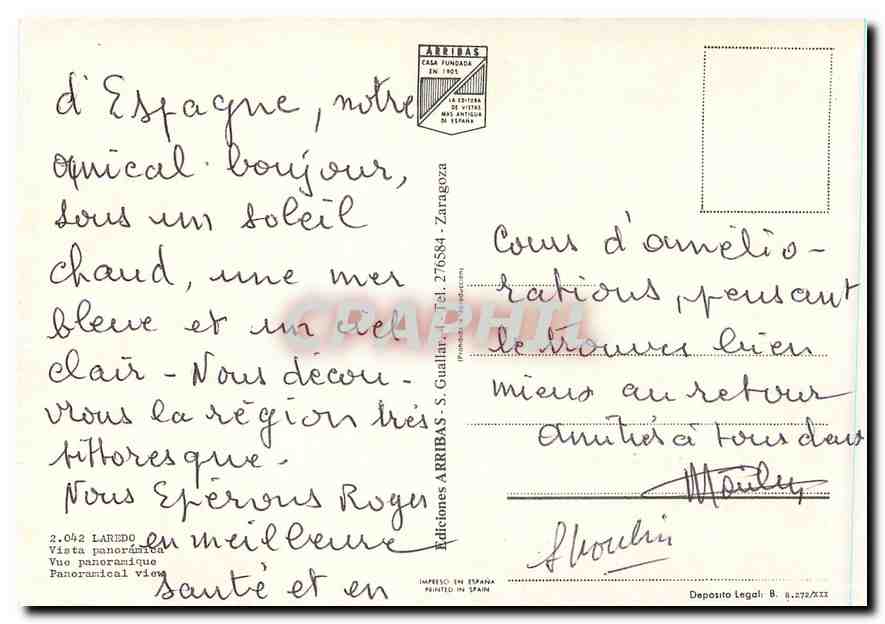 d'Espagne, notre
amical bonjour,
sous un soleil
chaud, une mer
bleue et un ciel
clair - Nous décou-
vrons la région très
pittoresque.
Nous Epérons Roger
en meilleure
santé et en
2.042 LAREDO
Vista panorámica
Vue panoramique
Panoramical view
ARRIBAS
CASA FUNDADA
EN 1905
LA EDITORA
DE VISTAS
MAS ANTIGUA
DE ESPAÑA
Ediciones ARRIBAS - S. Guallar, Tel. 276584 - Zaragoza
(Prohibida la reproducción)
CPAPHIL
IMPRESO EN ESPAÑA
PRINTED IN SPAIN
cours d'amélio-
rations, pensant
le trouver bien
mieux au retour
amitiés à tous deux
Moulin
Moulin
Deposito Legal: B. 8.272/XXX